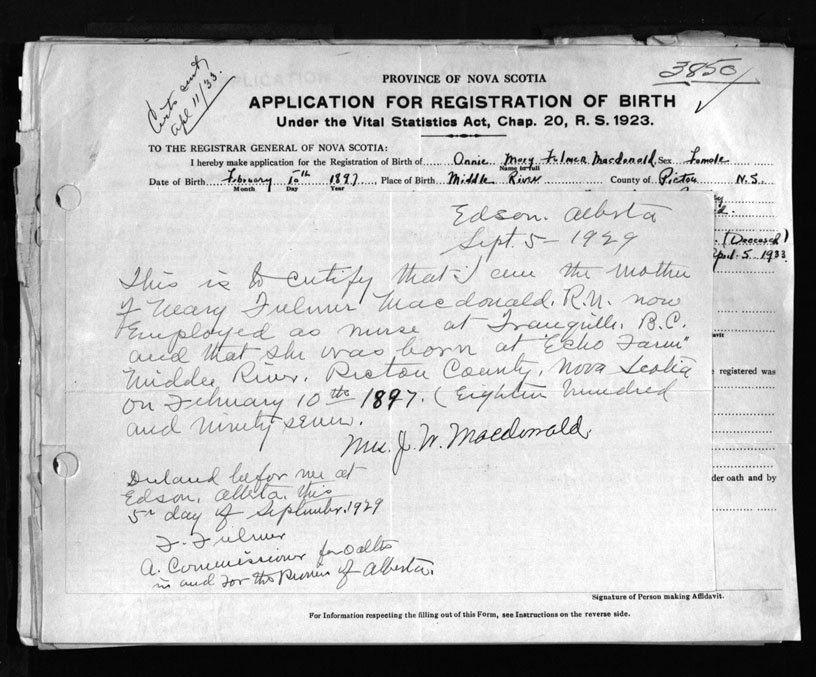 Certs sent
Apl 11/33.
3850
PROVINCE OF NOVA SCOTIA
APPLICATION FOR REGISTRATION OF BIRTH
Under the Vital Statistics Act, Chap. 20, R. S. 1923.
TO THE REGISTRAR GENERAL OF NOVA SCOTIA:
I hereby make application for the Registration of Birth of Annie Mary Fulmer Macdonald Sex Female
Name in full
Date of Birth February 10th 1897 Place of Birth Middle River County of Pictou N.S.
Month Day Year
(Deceased)
April 5 1933
Edson. Alberta
Sept. 5-1929
This is to certify that I am the mother
of Mary Fulmer Macdonald. R.N. now
employed as nurse at Tranquille. B.C.
and that she was born at "Echo Farm"
Middle River. Pictou County. Nova Scotia
on February 10th 1897. (Eighteen hundred
and ninety seven.
Mrs. J. W. Macdonald.
Declared before me at
Edson, Alberta, this
5th day of September. 1929
F. Fulmer
A. Commissioner for Oaths
in and for the Province of Alberta.
avit
e registered was
der oath and by
Signature of Person making Affidavit.
For Information respecting the filling out of this Form, see Instructions on the reverse side.